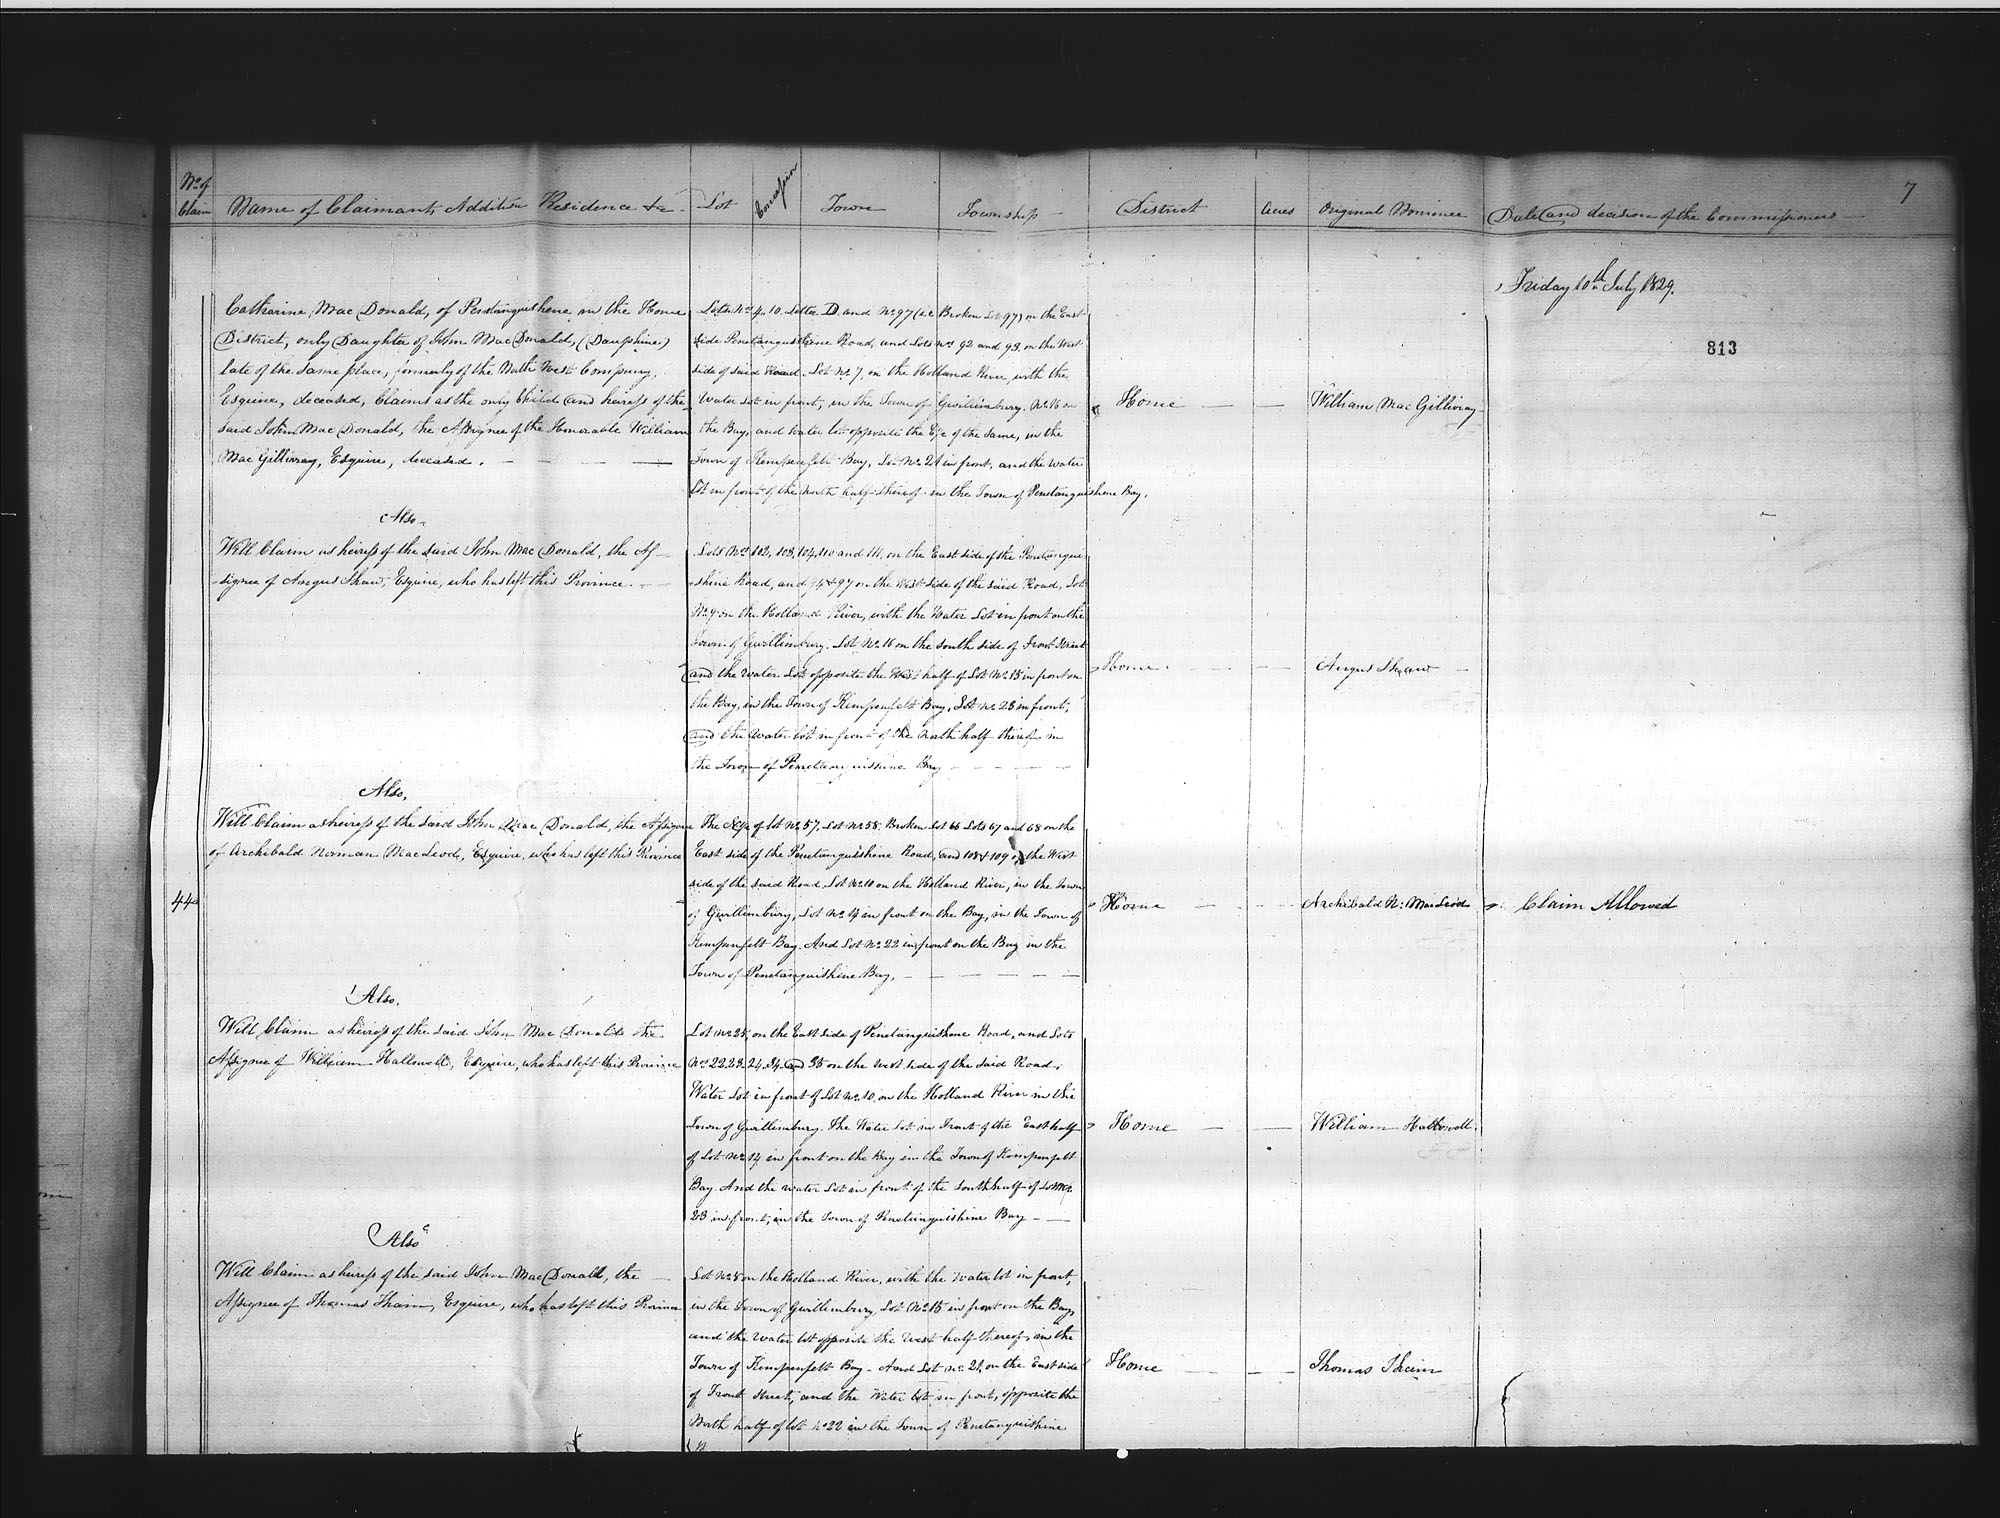 7
No of Claim
Name of Claimants Addition Residence &c
Lot
Concession
Town
Township
District
Acres
Original Nominee
Date and decision of the Commissioners
Friday 10th July 1829.
813
Catharine Mac Donald, of Penetanguishene in the Home
District, only Daughter of John Mac Donald, (Dauphine)
late of the same place, formerly of the North West Company,
Esquire, deceased, Claims as the only Child and heiress of the
said John Mac Donald, the Assignee of the Honorable William
Mac Gillivray, Esquire, deceased.
Lots No 4. 10. Letter D. and No 97 (i.e. Broken Lot 97) on the East
side Penetanguishene Road, and Lots Nos 92 and 93. on the West
side of said Road. Lot No. 7, on the Holland River, with the
Water Lot in front, in the Town of Gwillimbury. No. 16 on
the Bay, and water lot opposite the E½ of the same, in the
Town of Kempenfelt Bay, Lot No. 21 in front, and the Water
Lot in front of the North half thereof in the Town of Penetanguishene Bay.
Home
William Mac Gillivray
Also
Will Claim as heiress of the said John Mac Donald, the As-
signee of Angus Shaw, Esquire, who has left this Province
Lots Nos 102, 103, 104, 110 and 111, on the East side of the Penetangui
shine Road, and 94 & 97 on the West side of the said Road, Lot
No. 9. on the Holland River, with the Water Lot in front on the
Town of Gwillimbury. Lot No. 16 on the South side of Front Street
and the Water Lot opposite the West half of Lot No. 15 in front on
the Bay, in the Town of Kempenfelt Bay, Lot No. 23 in front,
and the water lot in front of the North half thereof in
the Town of Penetanguishine Bay
Home
Angus Shaw
Also,
Will Claim as heiress of the said John Mac Donald, the Assignee
of Archibald Norman MacLeod, Esquire, who has left this Province
The S½ of lot No. 57, Lot No. 58. Broken Lot 66 Lots 67 and 68 on the
East side of the Penetanguishine Road, and 108 & 109 on the West
side of the said Road Lot No. 10 on the Holland River, in the Town
of Gwillimbury, Lot No. 14 in front on the Bay, in the Town of
Kempenfelt Bay. And Lot No. 22 in front on the Bay in the
Town of Penetanguishine Bay,
44
Home
Archibald N: MacLeod
Claim Allowed
Also.
Will Claim as heiress of the said John Mac Donald the
Assignee of William Hallowell, Esquire, who has left this Province
Lot No. 25, on the East side of Penetanguishene Road, and Lots
Nos. 22. 23. 24. 34. and 35 on the West side of the said Road,
Water Lot in front of Lot No. 10, on the Holland River in the
Town of Gwillimbury. The Water Lot in Front of the East half
of Lot No. 14 in front on the Bay in the Town of Kempenfelt
Bay. And the water Lot in front of the South half of Lot No.
23 in front, in the Town of Penetanguishine Bay
Home
William Hallowell.
Also
Will Claim as heiress of the said John Mac Donald, the
Assignee of Thomas Thain, Esquire, who has left this Province
Lot No. 8 on the Holland River, with the Water lot in front,
in the Town of Gwillimbury, Lot No. 15 in front on the Bay,
and the Water lot opposite the West half thereof, in the
Town of Kempenfelt Bay - And Lot No. 21, on the East side
of Front Street, and the Water lot in front, opposite the
North half of lot No 22 in the Town of Penetanguishine
Home
Thomas Thain